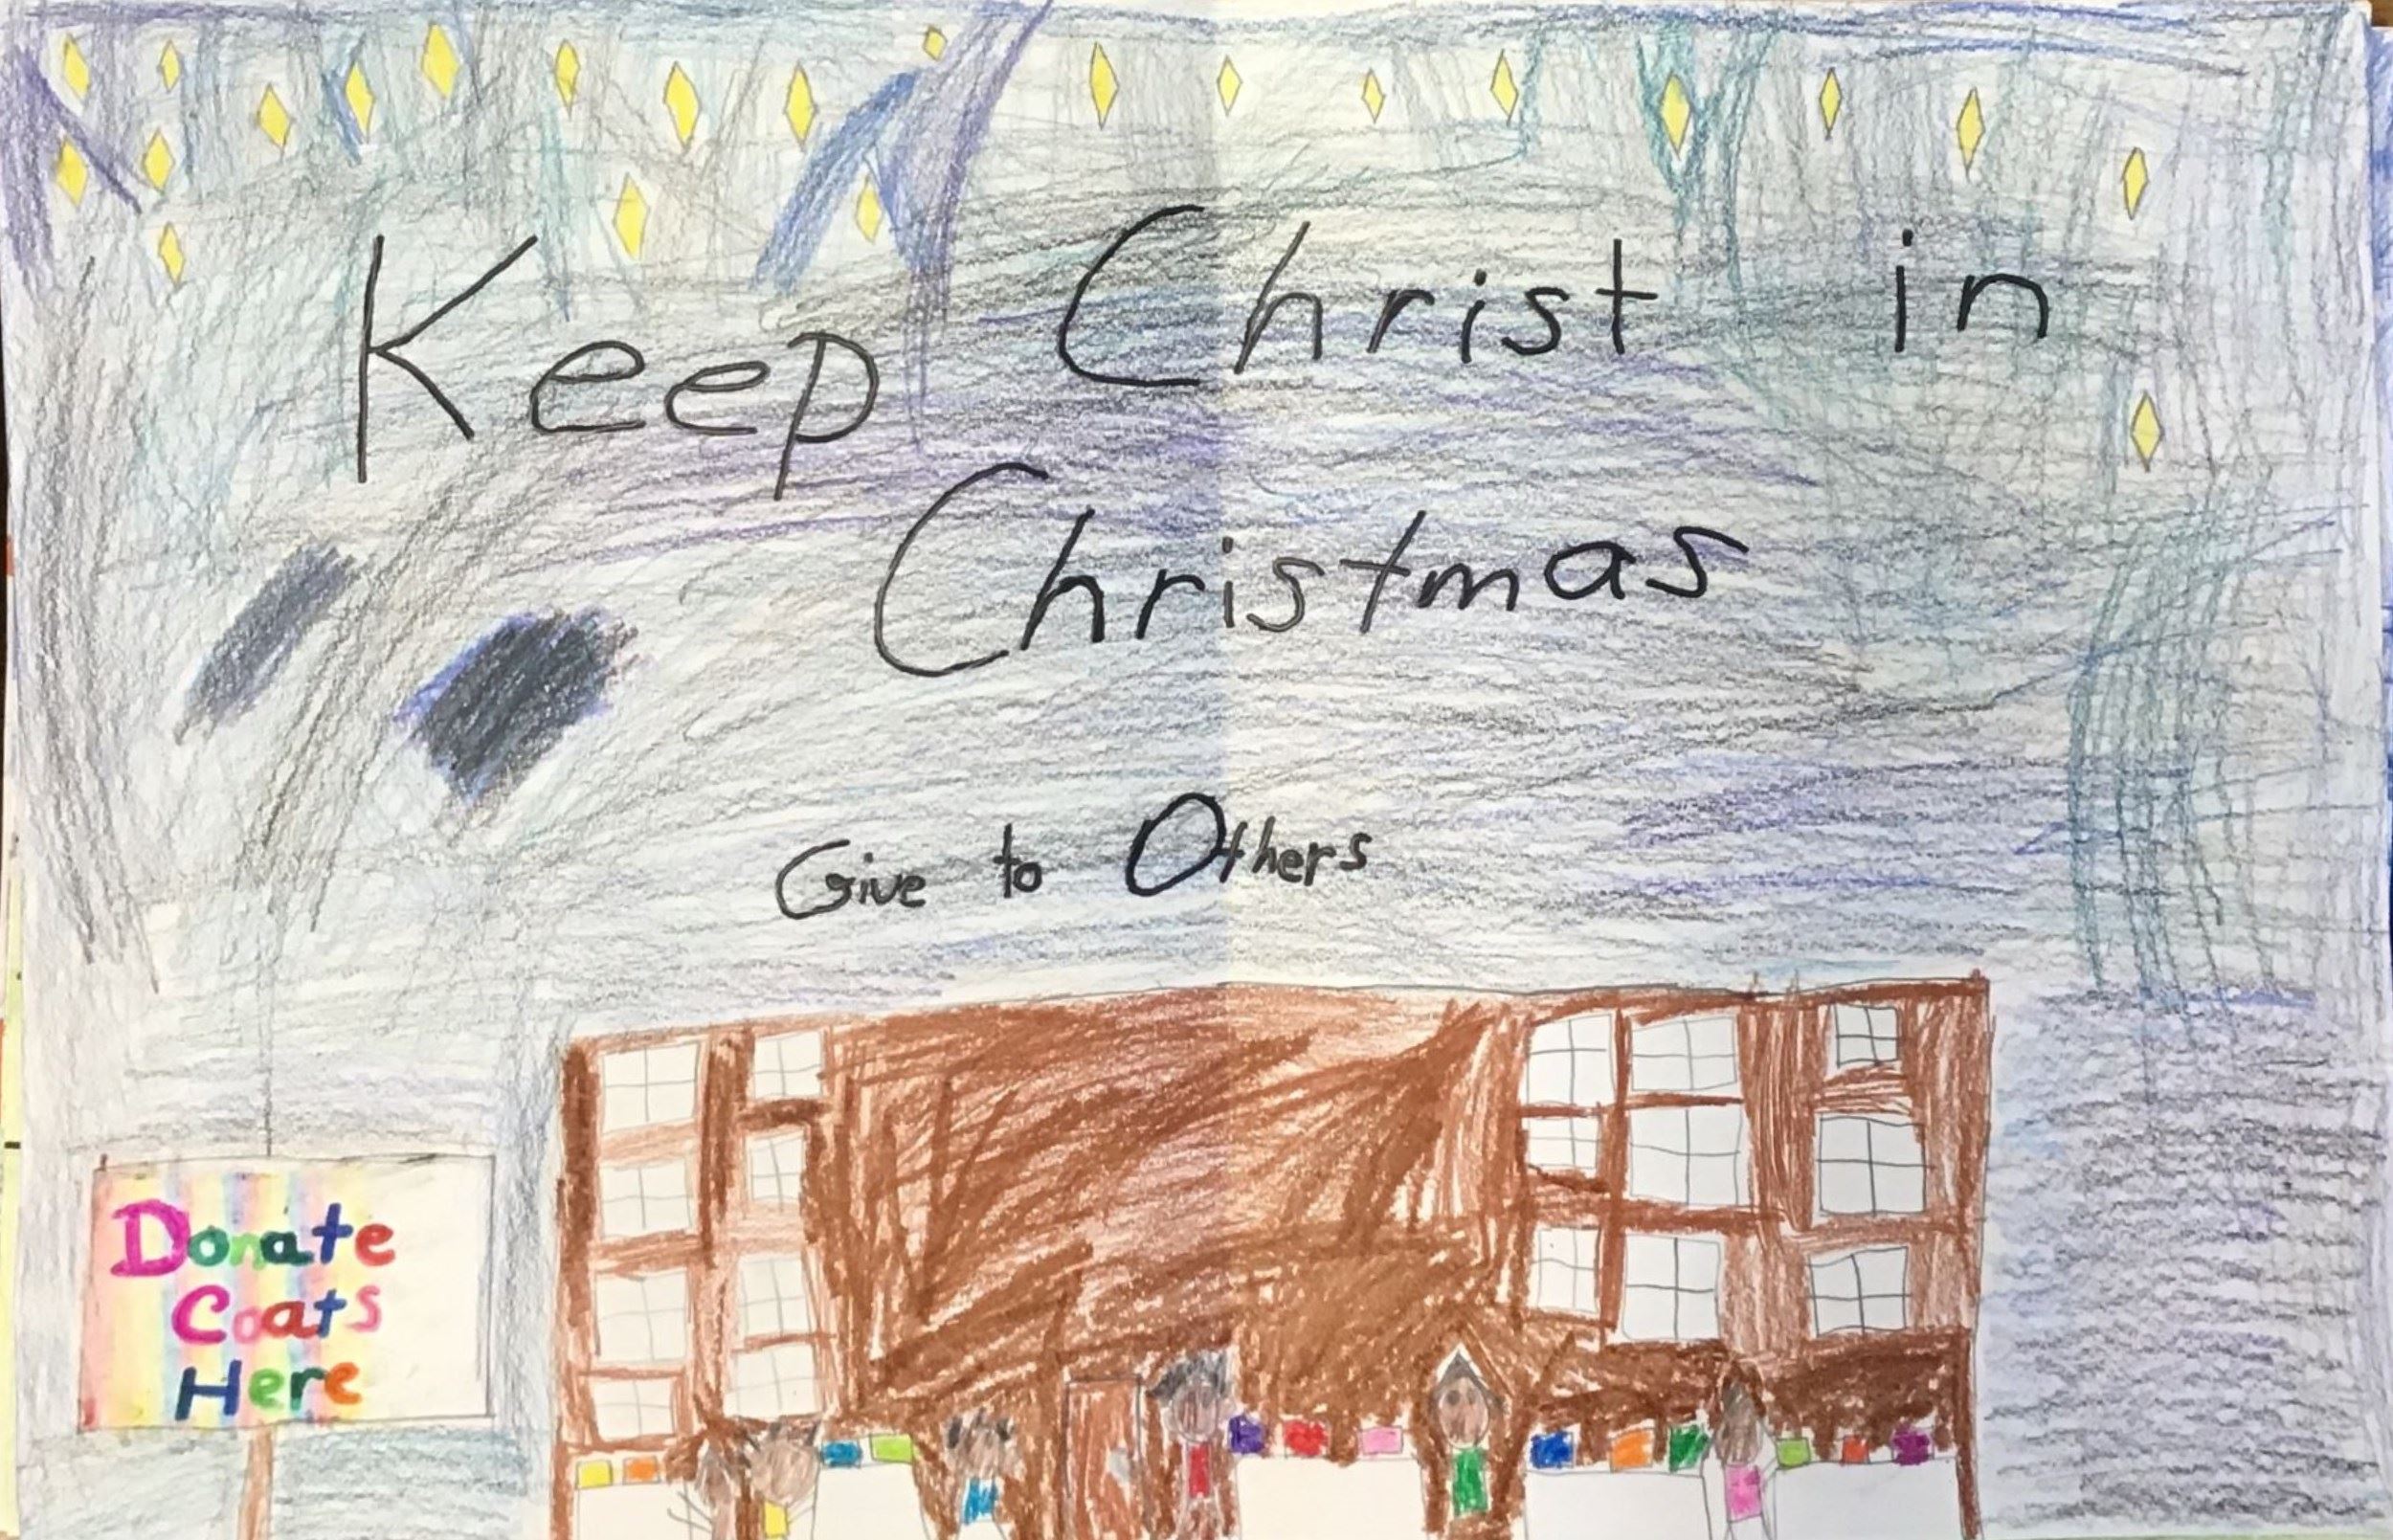 Keep Christ in
Christmas
Give to Others
Donate
Coats
Here